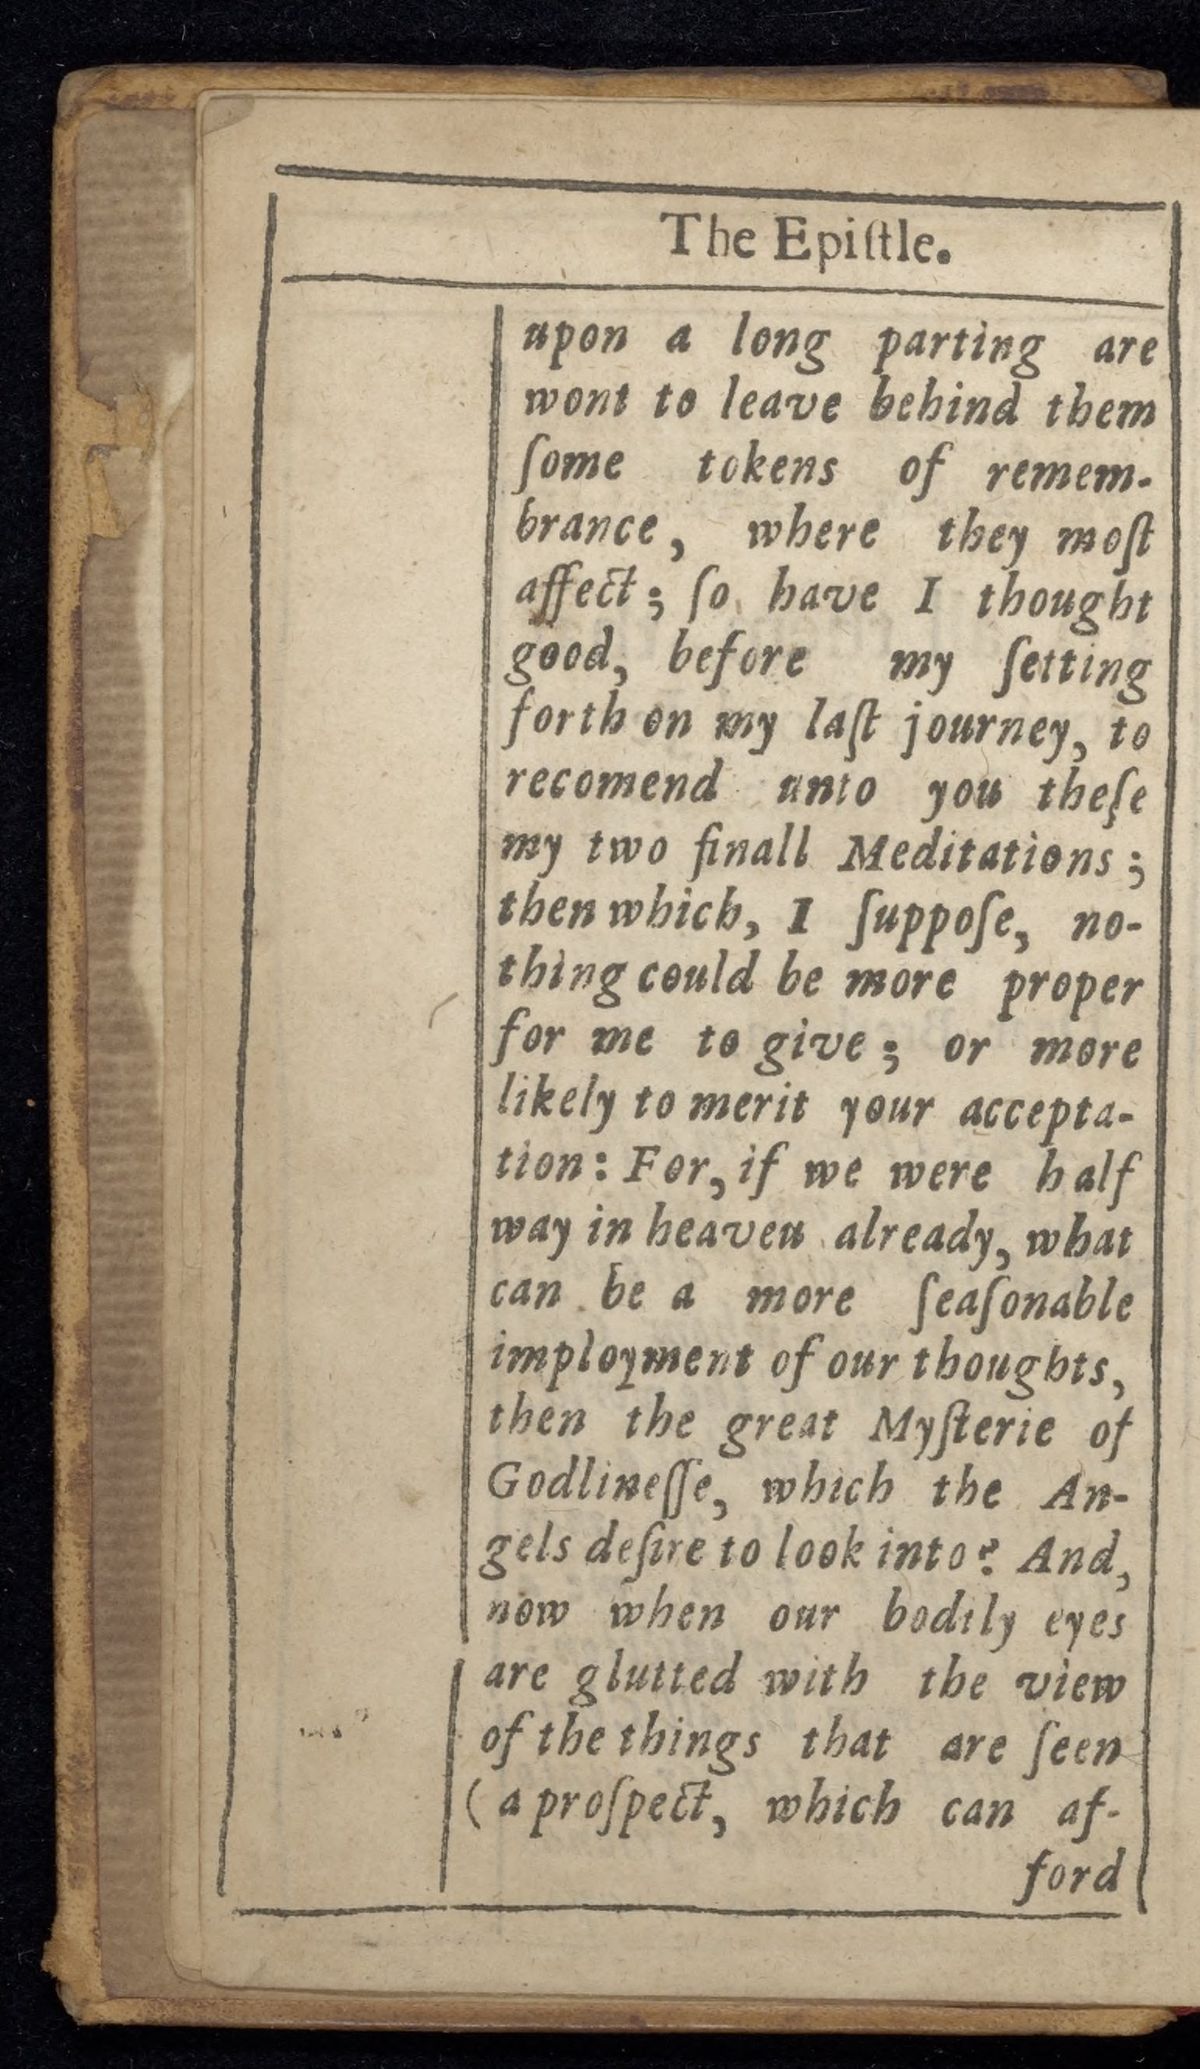 The Epiſtle.
upon a long parting are
wont to leave behind them
ſome tokens of remem-
brance, where they moſt
affect; ſo have I thought
good, before my ſetting
forth on my laſt journey, to
recomend unto you theſe
my two finall Meditations;
then which, I ſuppoſe, no-
thing could be more proper
for me to give; or more
likely to merit your accepta-
tion: For, if we were half
way in heaven already, what
can be a more ſeaſonable
imployment of our thoughts,
then the great Myſterie of
Godlineſſe, which the An-
gels deſire to look into? And,
now when our bodily eyes
are glutted with the view
of the things that are ſeen
(a proſpect, which can af-
ford